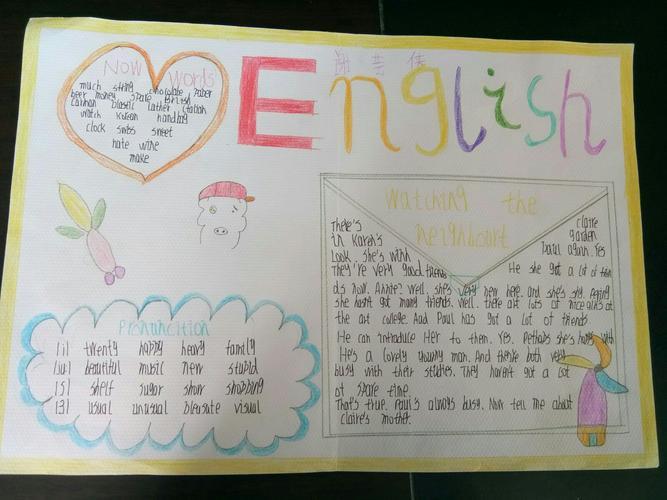 Now Words
much string chocolate paper
beer money spare British
German plastic leather Italian
watch Korean handbag
clock swiss sheet
hate wine
make
English
Watching the
neighbourt
There's Claire
in Karen's garden
Look. She's with Paul again. Yes
They're very good friends He she got a lot of
now. Annie? Well. she's very new here. and she's shy.
she hasn't got many friends. Well. there are lots of nice girls at
the art college. And Paul has got a lot of friends
He can introduce Her to them. Yes. Perhaps she's happy with
He's a lovely young man. And both very
busy with their studies. They haven't got a lot
of spare time.
That's true. Paul's always busy. Now tell me about
claire's mother.
Pronuncition
[i] twenty happy heavy family
[ju:] beautiful music new stupid
[ʃ] shelf sugar show shopping
[ʒ] usual unusual pleasure visual